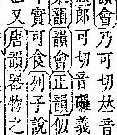 韻會乃可切𠀤音
郎可切音囉義
韻會正韻似
實可食列子說
又唐韻器物之